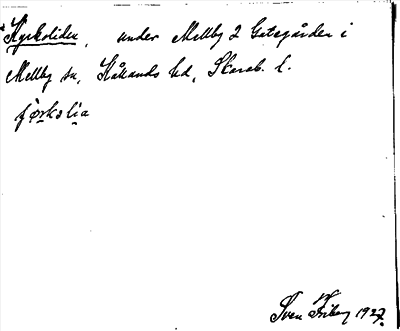 Kyrkoliden, under Mellby 2 Gatugården i
Mellby sn, Kållands hd, Skarab. l.
Sven Friberg 1927.